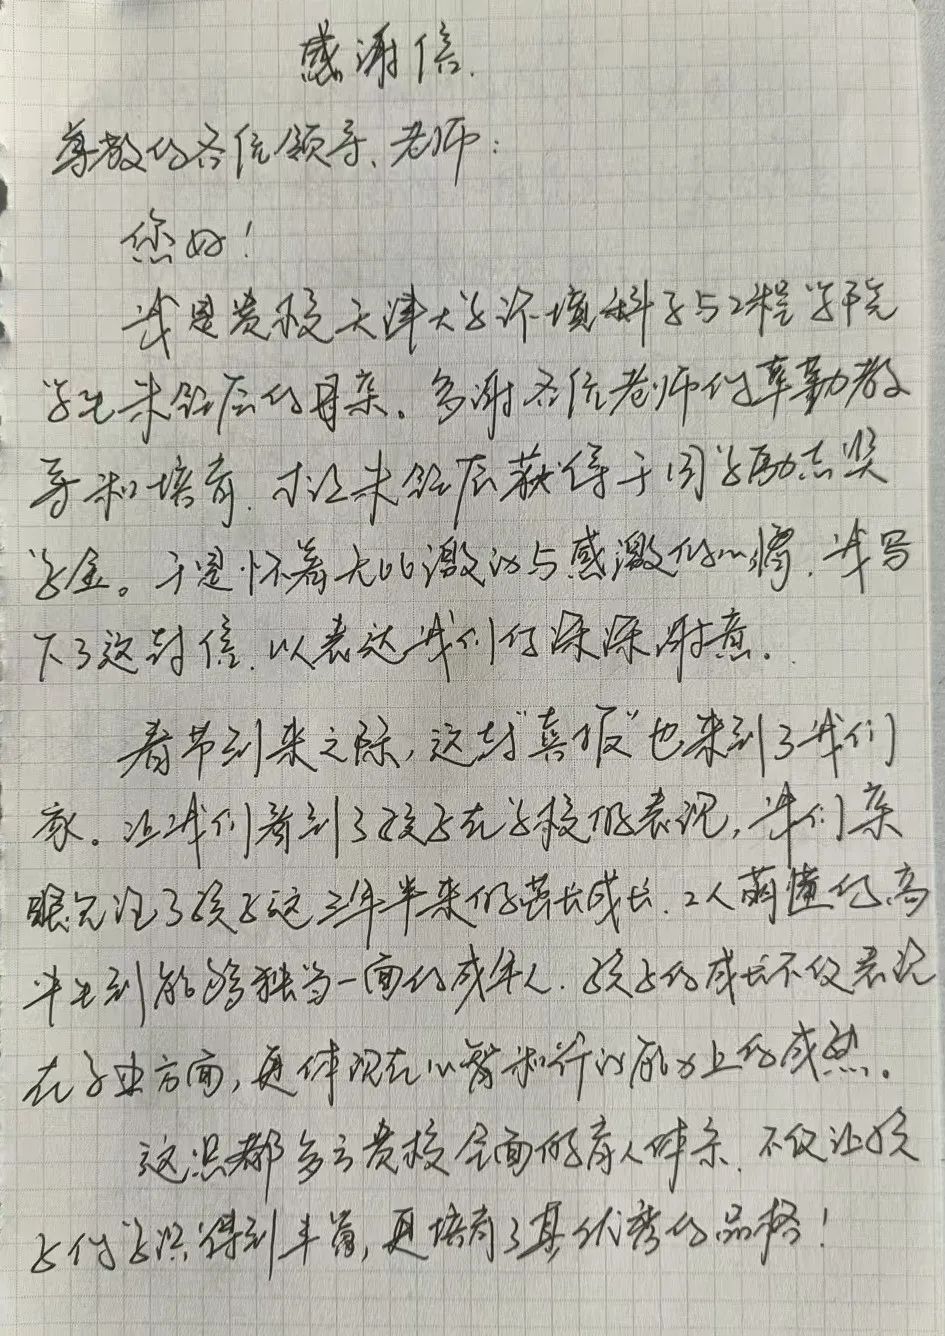 感谢信.
尊敬的各位领导、老师：
您好！
我是贵校天津大学环境科学与工程学院
学生朱 辰的母亲。多谢各位老师的辛勤教
导和培育，才让朱 辰获得了国 励志奖
学金。于是怀着无比激动与感激的心情，我写
下了这封信，以表达我们的深深谢意。
春节到来之际，这封“喜报”也来到了我们
家。让我们看到了孩子在学校的表现，我们亲
眼见证了孩子这三年半来的茁长成长，从懵懂的高
中生到能够独当一面的成年人，孩子的成长不仅表现
在学业方面，更体现在心智和行动能力上的成熟。
这只都多亏贵校全面的育人体系，不仅让孩
子的学识得到丰富，更培育了其优秀的品格！